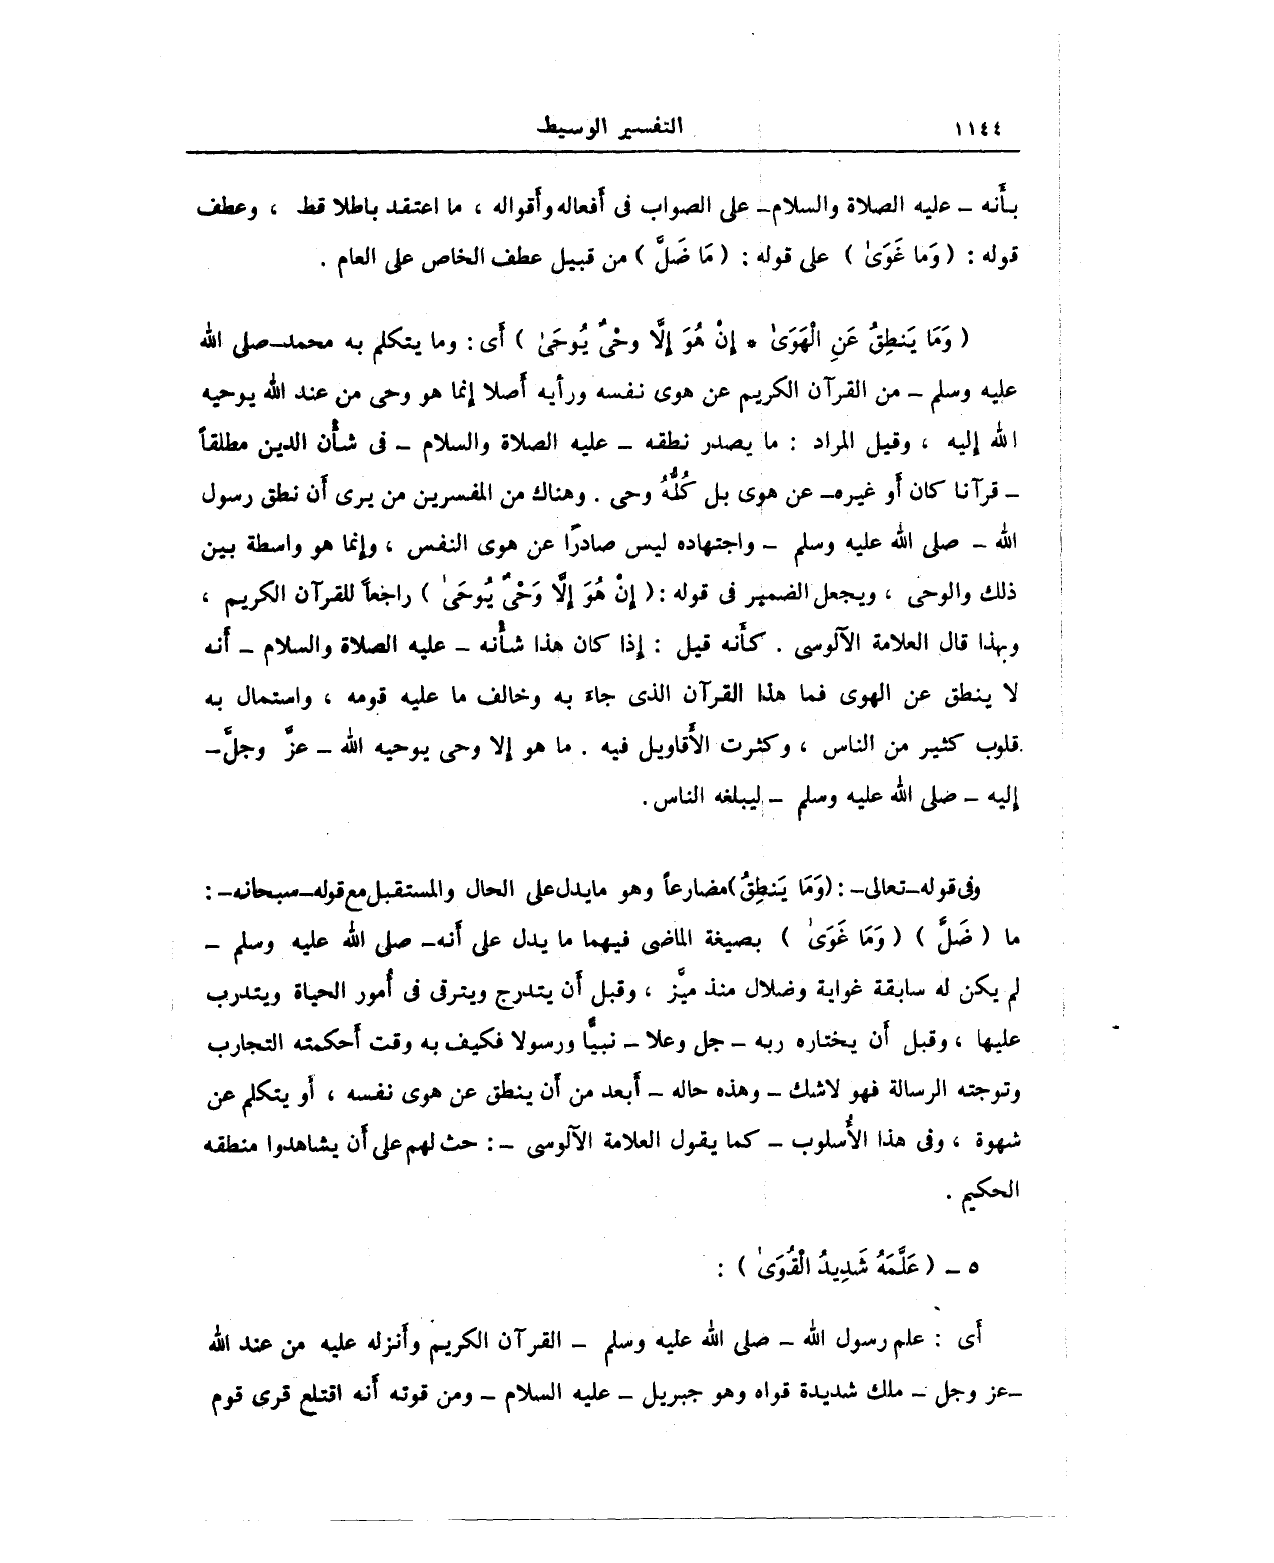 ١١٤٤ التفسير الوسيط
بأنه ـ عليه الصلاة والسلام ـ على الصواب فى أفعاله وأقواله ، ما اعتقد باطلا قط ، وعطف
قوله : ( وَمَا غَوَىٰ ) على قوله : ( مَا ضَلَّ ) من قبيل عطف الخاص على العام .
( وَمَا يَنطِقُ عَنِ الْهَوَىٰ * إِنْ هُوَ إِلَّا وحْىٌ يُوحَىٰ ) أى : وما يتكلم به محمد ـ صلى الله
عليه وسلم ـ من القرآن الكريم عن هوى نفسه ورأيه أصلا إنما هو وحى من عند الله يوحيه
الله إليه ، وقيل المراد : ما يصدر نطقه ـ عليه الصلاة والسلام ـ فى شأن الدين مطلقاً
ـ قرآنا كان أو غيره ـ عن هوى بل كُلُّهُ وحى . وهناك من المفسرين من يرى أن نطق رسول
الله ـ صلى الله عليه وسلم ـ واجتهاده ليس صادرًا عن هوى النفس ، وإنما هو واسطة بين
ذلك والوحى ، ويجعل الضمير فى قوله : ( إِنْ هُوَ إِلَّا وَحْىٌ يُوحَىٰ ) راجعاً للقرآن الكريم ،
وبهذا قال العلامة الآلوسى . كأنه قيل : إذا كان هذا شأنه ـ عليه الصلاة والسلام ـ أنه
لا ينطق عن الهوى فما هذا القرآن الذى جاء به وخالف ما عليه قومه ، واستمال به
قلوب كثير من الناس ، وكثرت الأقاويل فيه . ما هو إلا وحى يوحيه الله ـ عزَّ وجلَّ ـ
إليه ـ صلى الله عليه وسلم ـ ليبلغه الناس .
وفى قوله ـ تعالى ـ : ( وَمَا يَنطِقُ ) مضارعاً وهو مايدل على الحال والمستقبل مع قوله ـ سبحانه ـ :
ما ( ضَلَّ ) ( وَمَا غَوَىٰ ) بصيغة الماضى فيهما ما يدل على أنه ـ صلى الله عليه وسلم ـ
لم يكن له سابقة غواية وضلال منذ ميَّز ، وقبل أن يتدرج ويترقى فى أُمور الحياة ويتدرب
عليها ، وقبل أن يختاره ربه ـ جل وعلا ـ نبيًّا ورسولا فكيف به وقت أحكمته التجارب
وتوجته الرسالة فهو لاشك ـ وهذه حاله ـ أبعد من أن ينطق عن هوى نفسه ، أو يتكلم عن
شهوة ، وفى هذا الأُسلوب ـ كما يقول العلامة الآلوسى ـ : حث لهم على أن يشاهدوا منطقه
الحكيم .
٥ ـ ( عَلَّمَهُ شَدِيدُ الْقُوَىٰ ) :
أى : علم رسول الله ـ صلى الله عليه وسلم ـ القرآن الكريم وأنزله عليه من عند الله
ـ عز وجل ـ ملك شديدة قواه وهو جبريل ـ عليه السلام ـ ومن قوته أنه اقتلع قرى قوم